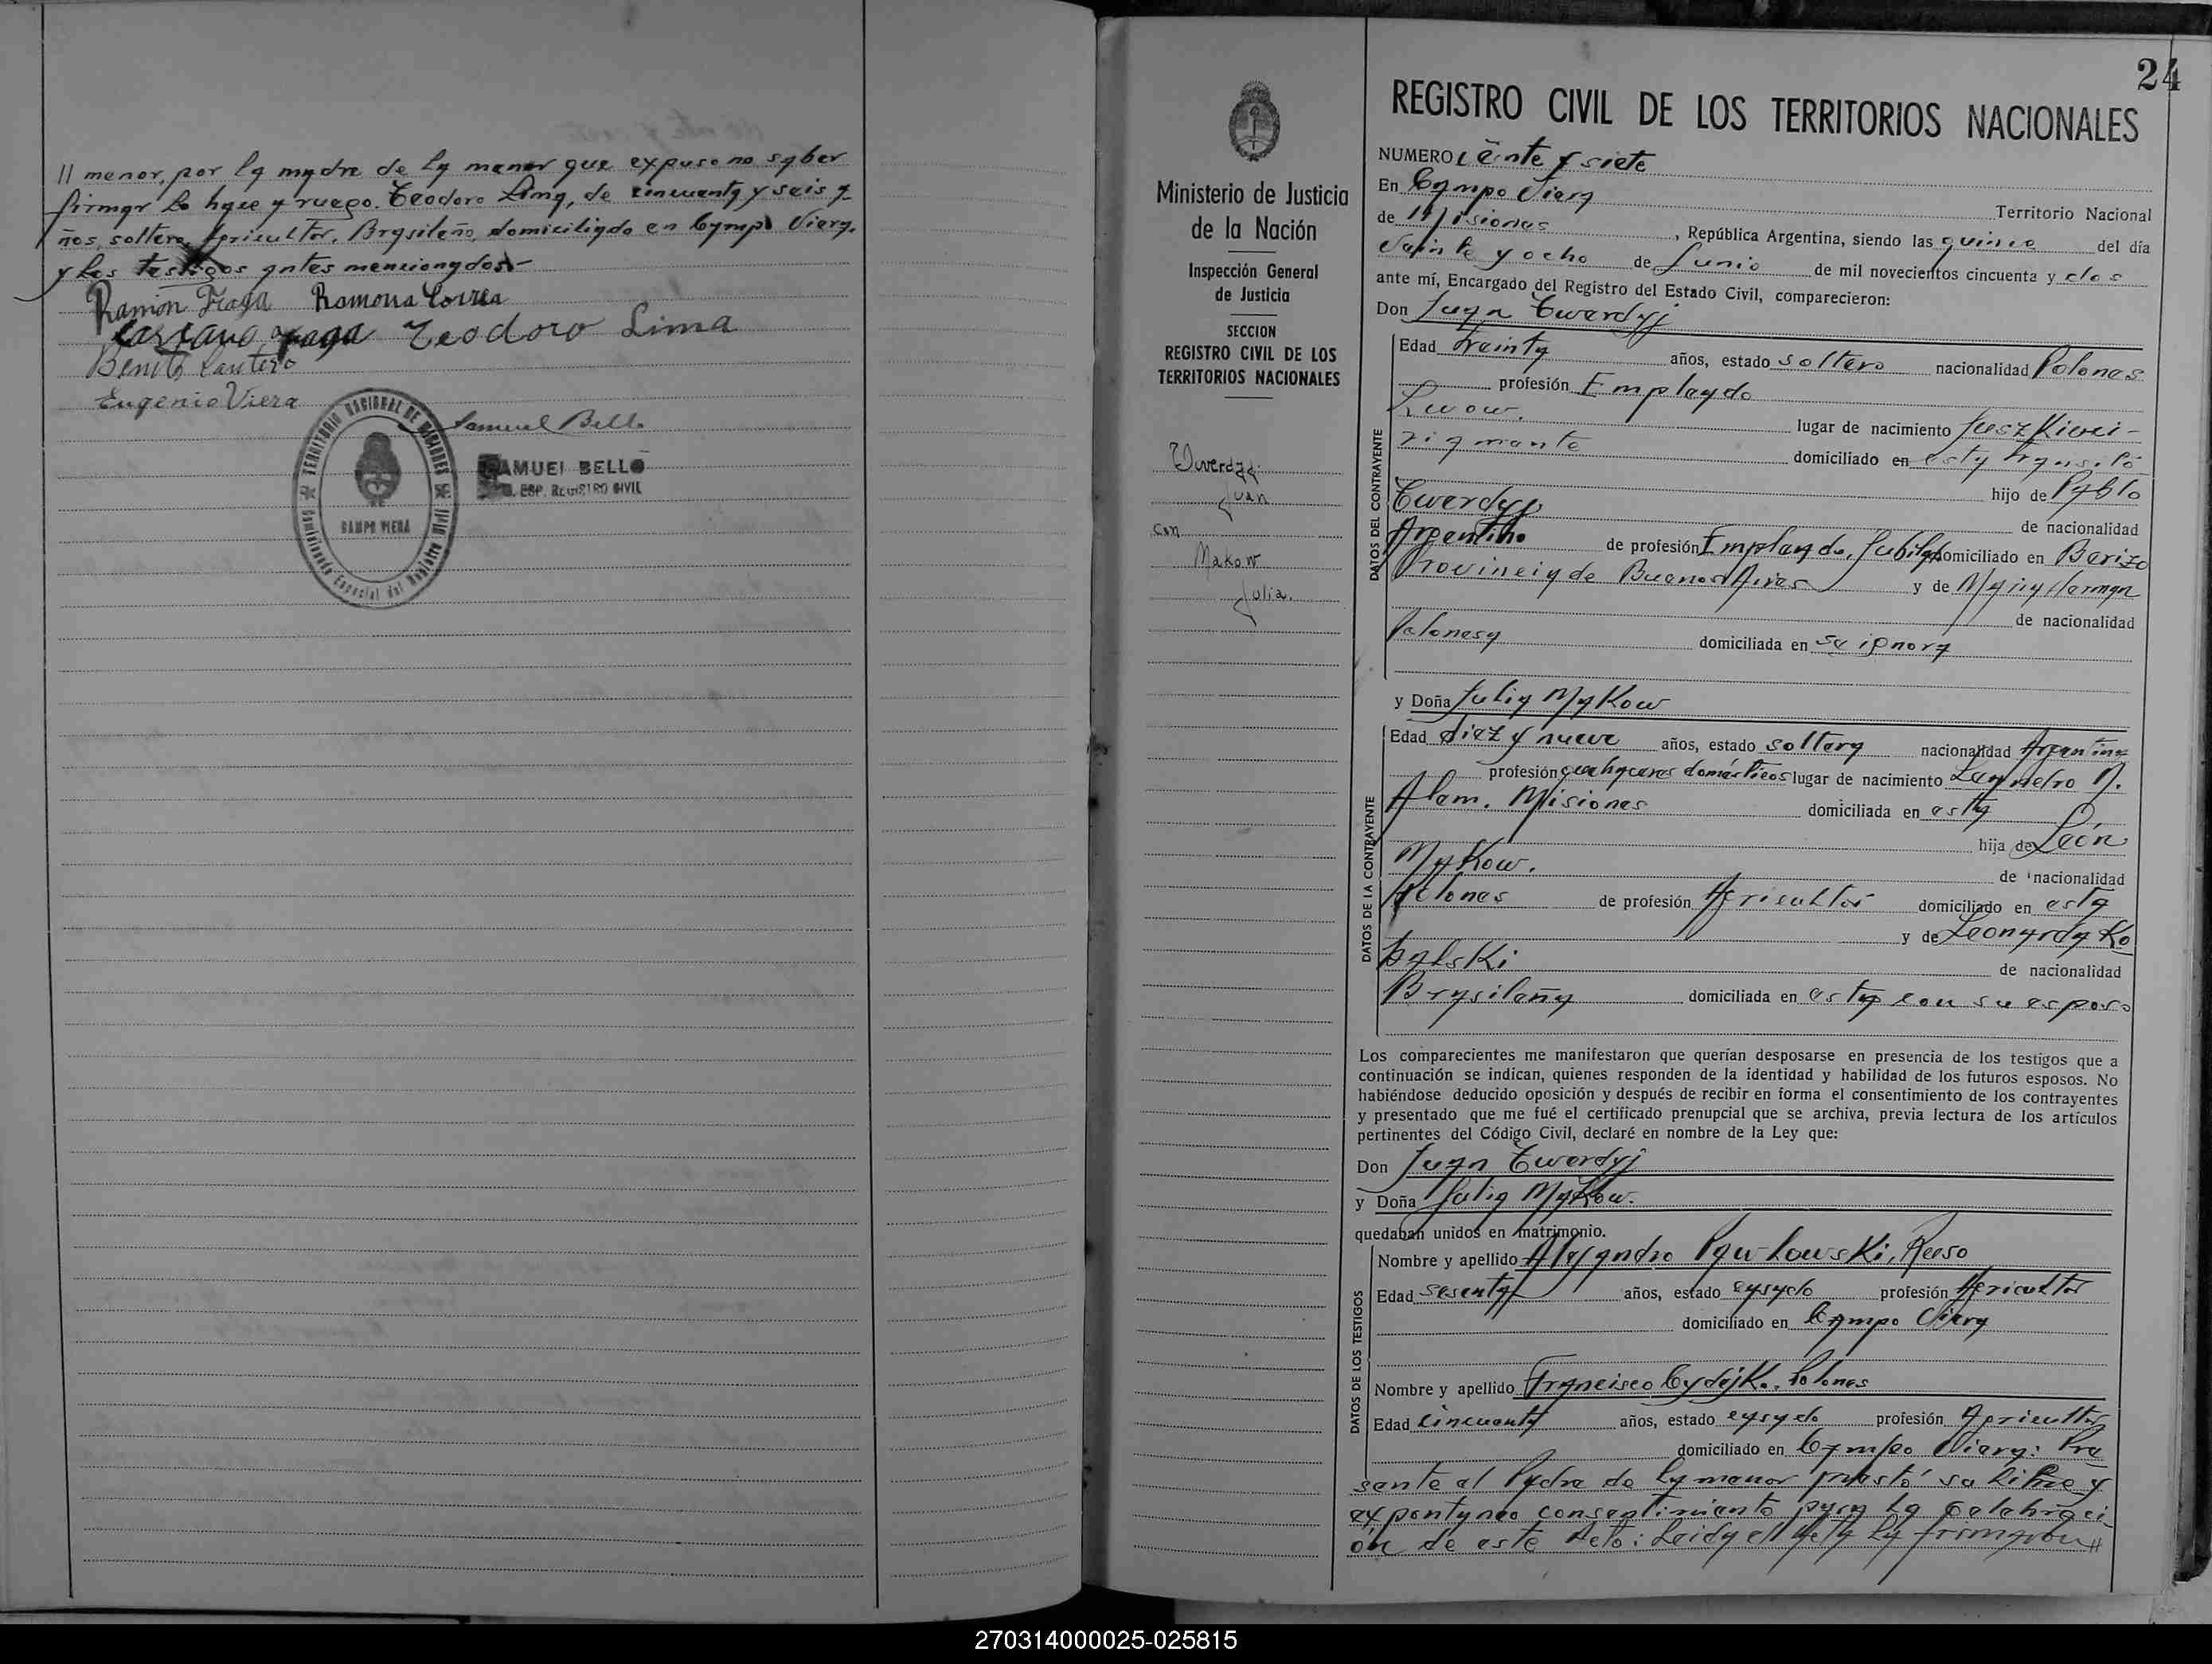 // menor, por la madre de la menor que expuso no saber
firmar lo hace a ruego. Teodoro Lima, de cincuenta y seis a-
ños, soltero, Agricultor, Brasileño, domiciliado en Campo Viera.
y los testigos antes mencionados.-
Ramón Fraga Ramona Correa
Fraga Teodoro Lima
Benito Cantero
Eugenio Viera
Samuel Bello
TERRITORIO NACIONAL DE MISIONES
CAMPO VIERA
Comisionado Especial del Registro Civil
SAMUEL BELLO
ESP. REGISTRO CIVIL
24
Ministerio de Justicia
de la Nación
Inspección General
de Justicia
SECCION
REGISTRO CIVIL DE LOS
TERRITORIOS NACIONALES
Twerdyj
Juan
con
Makow
Julia.
REGISTRO CIVIL DE LOS TERRITORIOS NACIONALES
NUMERO veinte y siete
En Campo Viera Territorio Nacional
de Misiones, República Argentina, siendo las quince del día
veinte y ocho de Junio de mil novecientos cincuenta y dos
ante mí, Encargado del Registro del Estado Civil, comparecieron:
Don Juan Twerdyj
DATOS DEL CONTRAYENTE
Edad treinta años, estado soltero nacionalidad Polones
profesión Empleado
Lwow. lugar de nacimiento
domiciliado en esta
hijo de Pablo
Twerdyj de nacionalidad
Argentino de profesión Empleado, Jubilado domiciliado en Berizo
Provincia de Buenos Aires y de Maria Herman
de nacionalidad
Polonesa domiciliada en se ignora
y Doña Julia Makow
DATOS DE LA CONTRAYENTE
Edad diez y nueve años, estado soltera nacionalidad Argentina
profesión quehaceres domésticos lugar de nacimiento Leandro N.
Alem. Misiones domiciliada en esta
hija de León
Makow. de nacionalidad
Polones de profesión Agricultor domiciliado en esta
y de Leonarda Ko
balski de nacionalidad
Brasileña domiciliada en esta con su esposo
Los comparecientes me manifestaron que querían desposarse en presencia de los testigos que a
continuación se indican, quienes responden de la identidad y habilidad de los futuros esposos. No
habiéndose deducido oposición y después de recibir en forma el consentimiento de los contrayentes
y presentado que me fué el certificado prenupcial que se archiva, previa lectura de los artículos
pertinentes del Código Civil, declaré en nombre de la Ley que:
Don Juan Twerdyj
y Doña Julia Makow.
quedaban unidos en matrimonio.
DATOS DE LOS TESTIGOS
Nombre y apellido Alejandro Pawlowski, Ruso
Edad sesenta años, estado casado profesión Agricultor
domiciliado en Campo Viera
Nombre y apellido Francisco Polones
Edad cincuenta años, estado casado profesión Agricultor
domiciliado en Campo Viera: Pre
sente el Padre de la menor prestó su libre y
expontaneo consentimiento para la celebraci-
ón de este Acto: Leida el Acta la firmaron //
270314000025-025815